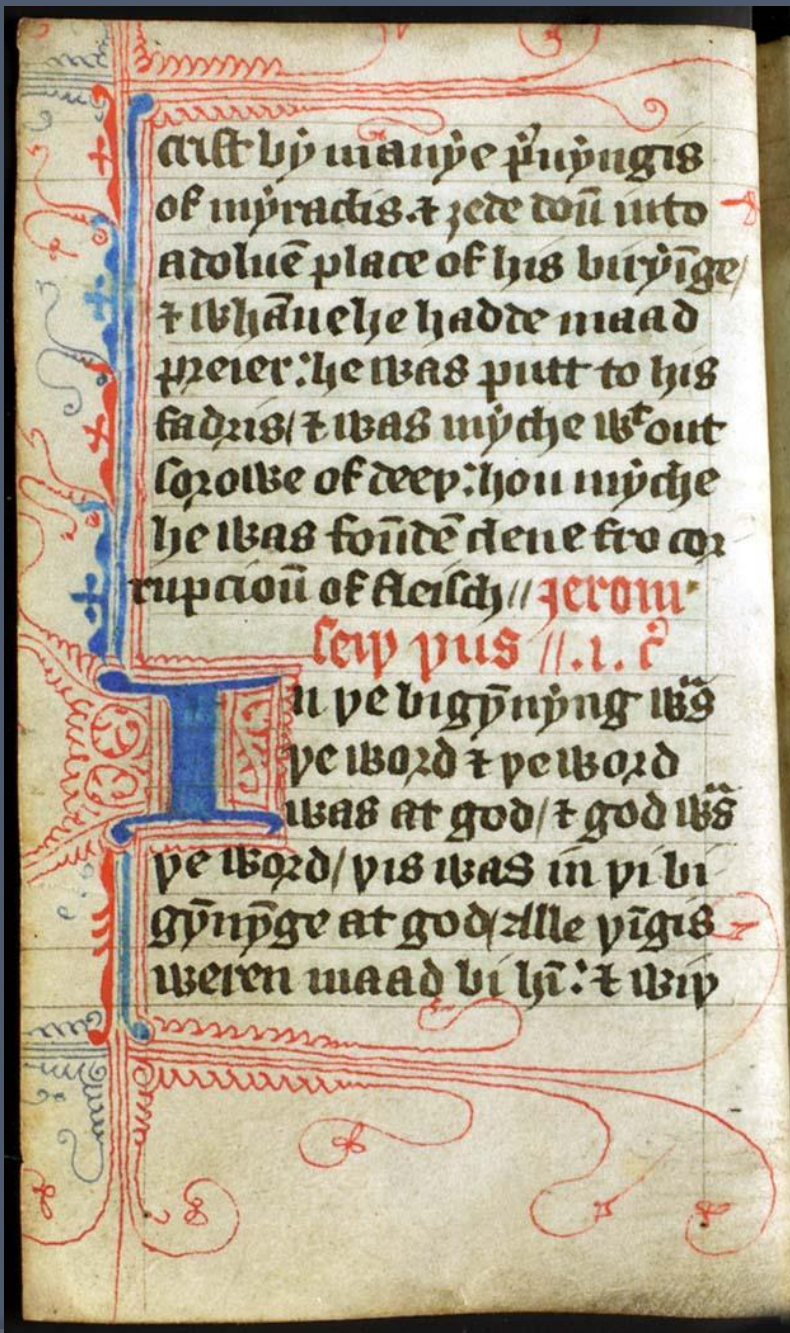 crist by manye p̃uyngis
of myraclis. ⁊ ȝede doū into
a doluē place of his biryīge/
⁊ whāne he hadde maad
preier: he was putt to his
fadris/ ⁊ was myche wᵗout
sorowe of deeþ: hou myche
he was foūdē clene fro cor
rupcioū of fleisch// Jerom
seiþ þus //.1. c̃
In þe bigȳnyng wᵃs
þe word ⁊ þe word
was at god/ ⁊ god wᵃs
þe word/ þis was in þi bi
gȳnȳge at god/ Alle þīgis
weren maad bi hī: ⁊ wiþ